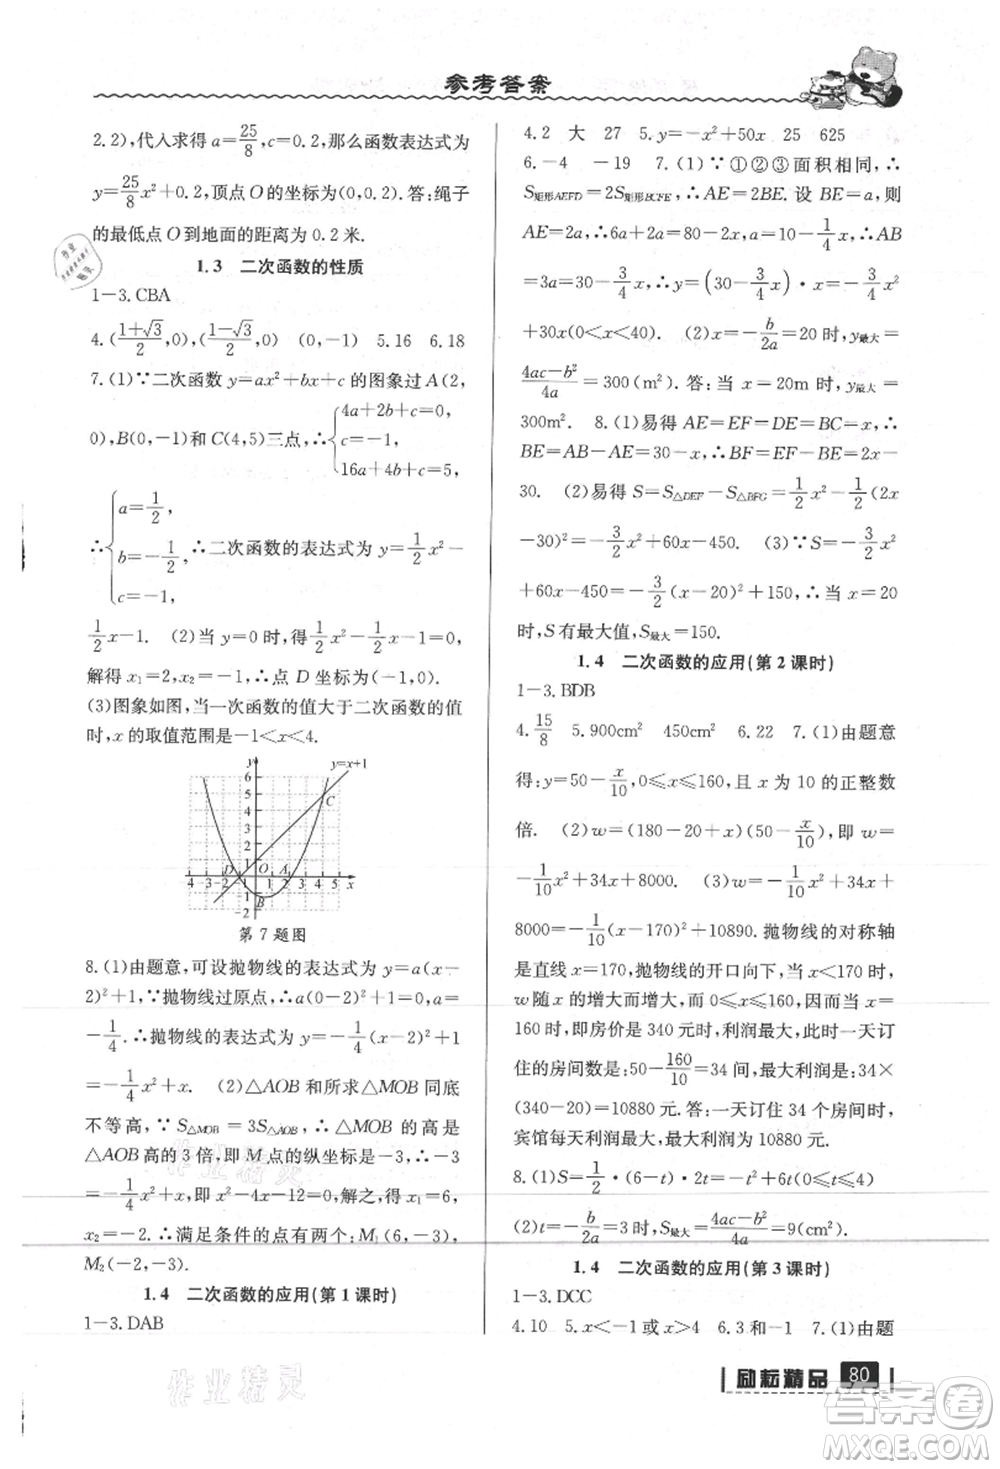 参考答案
2.2),代入求得 a=25/8,c=0.2,那么函数表达式为
y=25/8x²+0.2,顶点 O 的坐标为(0,0.2).答:绳子
的最低点 O 到地面的距离为 0.2 米.
1.3 二次函数的性质
1-3.CBA
4.((1+√3)/2,0),((1-√3)/2,0) (0,-1) 5.16 6.18
7.(1)∵二次函数 y=ax²+bx+c 的图象过 A(2,
0),B(0,-1)和 C(4,5)三点,∴{4a+2b+c=0,
c=-1,
16a+4b+c=5,
∴{a=1/2,
b=-1/2,∴二次函数的表达式为 y=1/2x²-
c=-1,
1/2x-1. (2)当 y=0 时,得1/2x²-1/2x-1=0,
解得 x₁=2,x₂=-1,∴点 D 坐标为(-1,0).
(3)图象如图,当一次函数的值大于二次函数的值
时,x 的取值范围是-1<x<4.
y y=x+1
6
5
4
3
2
1
C
D O A
-4-3-2-1 1 2 3 4 5 x
-1 B
-2
第 7 题图
8.(1)由题意,可设抛物线的表达式为 y=a(x-
2)²+1,∵抛物线过原点,∴a(0-2)²+1=0,a=
-1/4,∴抛物线的表达式为 y=-1/4(x-2)²+1
=-1/4x²+x. (2)△AOB 和所求△MOB 同底
不等高,∵S△MOB=3S△AOB,∴△MOB 的高是
△AOB 高的 3 倍,即 M 点的纵坐标是-3,∴-3
=-1/4x²+x,即 x²-4x-12=0,解得 x₁=6,
x₂=-2,∴满足条件的点有两个:M₁(6,-3),
M₂(-2,-3).
1.4 二次函数的应用(第 1 课时)
1-3.DAB
4.2 大 27 5.y=-x²+50x 25 625
6.-4 -19 7.(1)∵①②③面积相同,∴
S矩形AEFD=2S矩形BCFE,∴AE=2BE.设 BE=a,则
AE=2a,∴6a+2x=80-2a,∴a=-1/4x
+10.3a=30-3/4x,∴y=(30-3/4x)·x=-3/4x²
+30x(0<x<40). (2)x=-b/2a=20 时,y最大=
(4ac-b²)/4a=300(m²).答:当 x=20m 时,y最大=
300m². 8.(1)易得 AE=EF=DE=BC=x,∴
BE=AE-AB=x-(30-x),∴BF=EF-BE=2x-
30. (2)易得 S=S△DEF-S△BFG=1/2x²-1/2(2x
-30)²=-3/2x²+60x-450. (3)∵S=-3/2x²
+60x-450=-3/2(x-20)²+150,∴当 x=20
时,S 有最大值,S最大=150.
1.4 二次函数的应用(第 2 课时)
1-3.BDB
4.15/8 5.900cm² 450cm² 6.22 7.(1)由题意
得:y=50-x/10,0≤x≤160,且 x 为 10 的正整数
倍. (2)w=(180-20+x)(50-x/10),即 w=
-1/10x²+34x+8000. (3)w=-1/10x²+34x+
8000=-1/10(x-170)²+10890.抛物线的对称轴
是直线 x=170,抛物线的开口向下,当 x≤170 时,
w 随 x 的增大而增大,但 0≤x≤160,∴当 x=
160 时,即房价是 340 元时,利润最大,此时一天订
住的房间数是:50-160/10=34(间),最大利润是:34×
(340-20)=10880 元.答:一天订住 34 个房间时,
宾馆每天利润最大,最大利润为 10880 元.
8.(1)S=1/2·(6-t)·2t=-t²+6t(0≤t≤4)
(2)t=-b/2a=3 时,S最大=(4ac-b²)/4a=9(cm²).
1.4 二次函数的应用(第 3 课时)
1-3.DCC
4.10 5.x<-1 或 x>4 6.3 和-1 7.(1)由题
励耘精品 80
作业精灵
作业精灵
答案卷
MXQE.COM